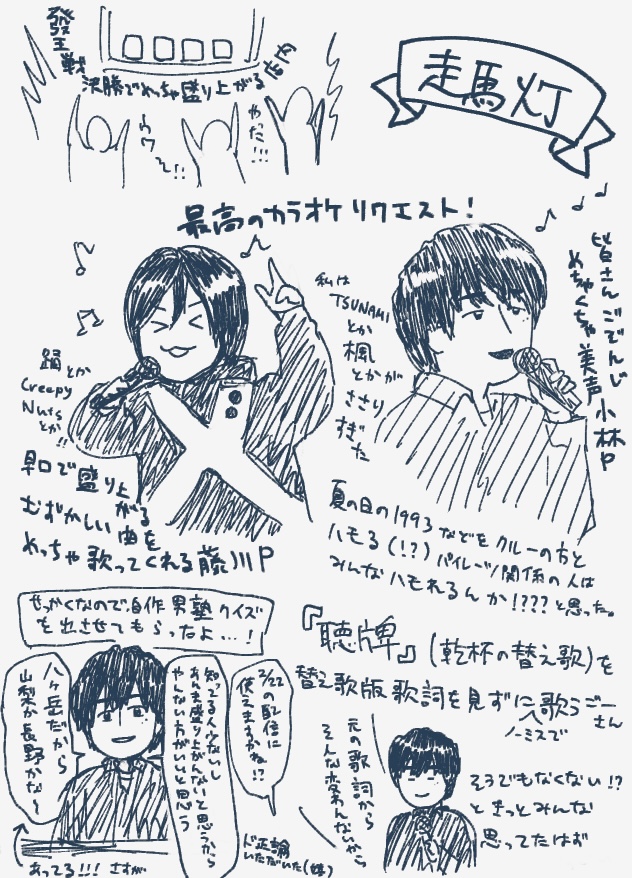 發王戦
決勝でめっちゃ盛り上がる
店内
ウワ〜!!
やだ!!!
走馬灯
最高のカラオケリクエスト!
踊とか
Creepy
Nutsとか!!
早口で盛り上がる
むずかしい曲を
めっちゃ歌ってくれる藤川P
私は
TSUNAMI
とか
楓
とかが
ささり
すぎた
皆さんごぞんじ
めちゃくちゃ美声小林P
夏の日の1993などをクルーの方と
ハモる(!?)パイレーツ関係の人は
みんなハモれるんか!????と思った。
せっかくなので自作男塾クイズ
を出させてもらったよ…!
八ヶ岳だから
山梨か長野かな〜
あってる!!!さすが
2/22の配信に
使えますかね!?
知ってる人少ないし
あんま盛り上がんないと思うから
やんない方がいいと思う
ド正論
いただいた(嬉)
『聴牌』(乾杯の替え歌)を
替え歌版歌詞を見ずにノーミスで歌うごーさん
元の歌詞から
そんな変わんないから
そうでもなくない!?
ときっとみんな
思ってたはず